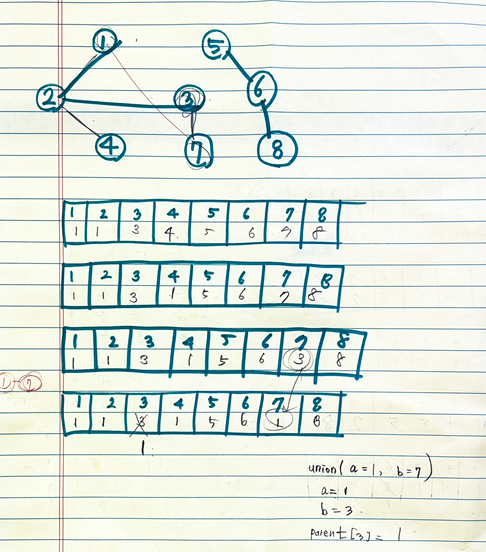 1 5
2 3 6
4 7 8
1 2 3 4 5 6 7 8
1 1 3 4 5 6 7 8
1 2 3 4 5 6 7 8
1 1 3 1 5 6 7 8
1 2 3 4 5 6 7 8
1 1 3 1 5 6 3 8
1 2 3 4 5 6 7 8
1 1 3 1 5 6 1 8
1
union( a=1, b=7)
a=1
b=3
parent[3] = 1